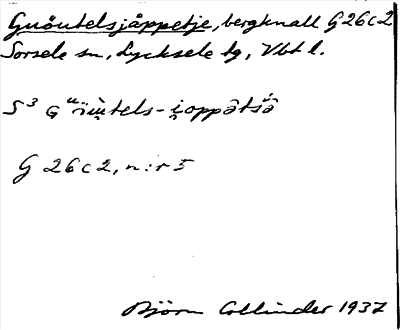 Guöutelsjåppetje, bergknall G 26 c 2
Sorsele sn, Lycksele tg, Vbt l.
S³
G 26 c 2, n:r 5
Björn Collinder 1937